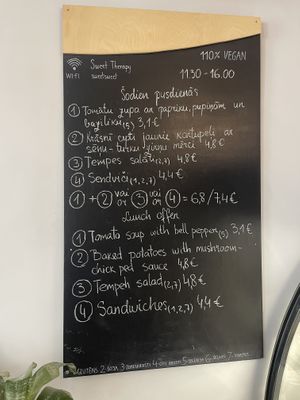 Sweet Therapy
110% VEGAN
WI-FI
sweetsweet
11:30 - 16.00
Šodien pusdienās
① Tomātu zupa ar papriku, pupiņām un
baziliku (5) 3,1 €
② Krāsnī cepti jaunie kartupeļi ar
sēņu-turku zirņu mērci 4,8 €
③ Tempes salāti (2,7) 4,8 €
④ Sendviči (1,2,7) 4,4 €
① + ② vai or ③ vai or ④ = 6,8 / 7,4 €
Lunch offer
① Tomato soup with bell peppers (5) 3,1 €
② Baked potatoes with mushroom-
chick pea sauce 4,8 €
③ Tempeh salad (2,7) 4,8 €
④ Sandwiches (1,2,7) 4,4 €